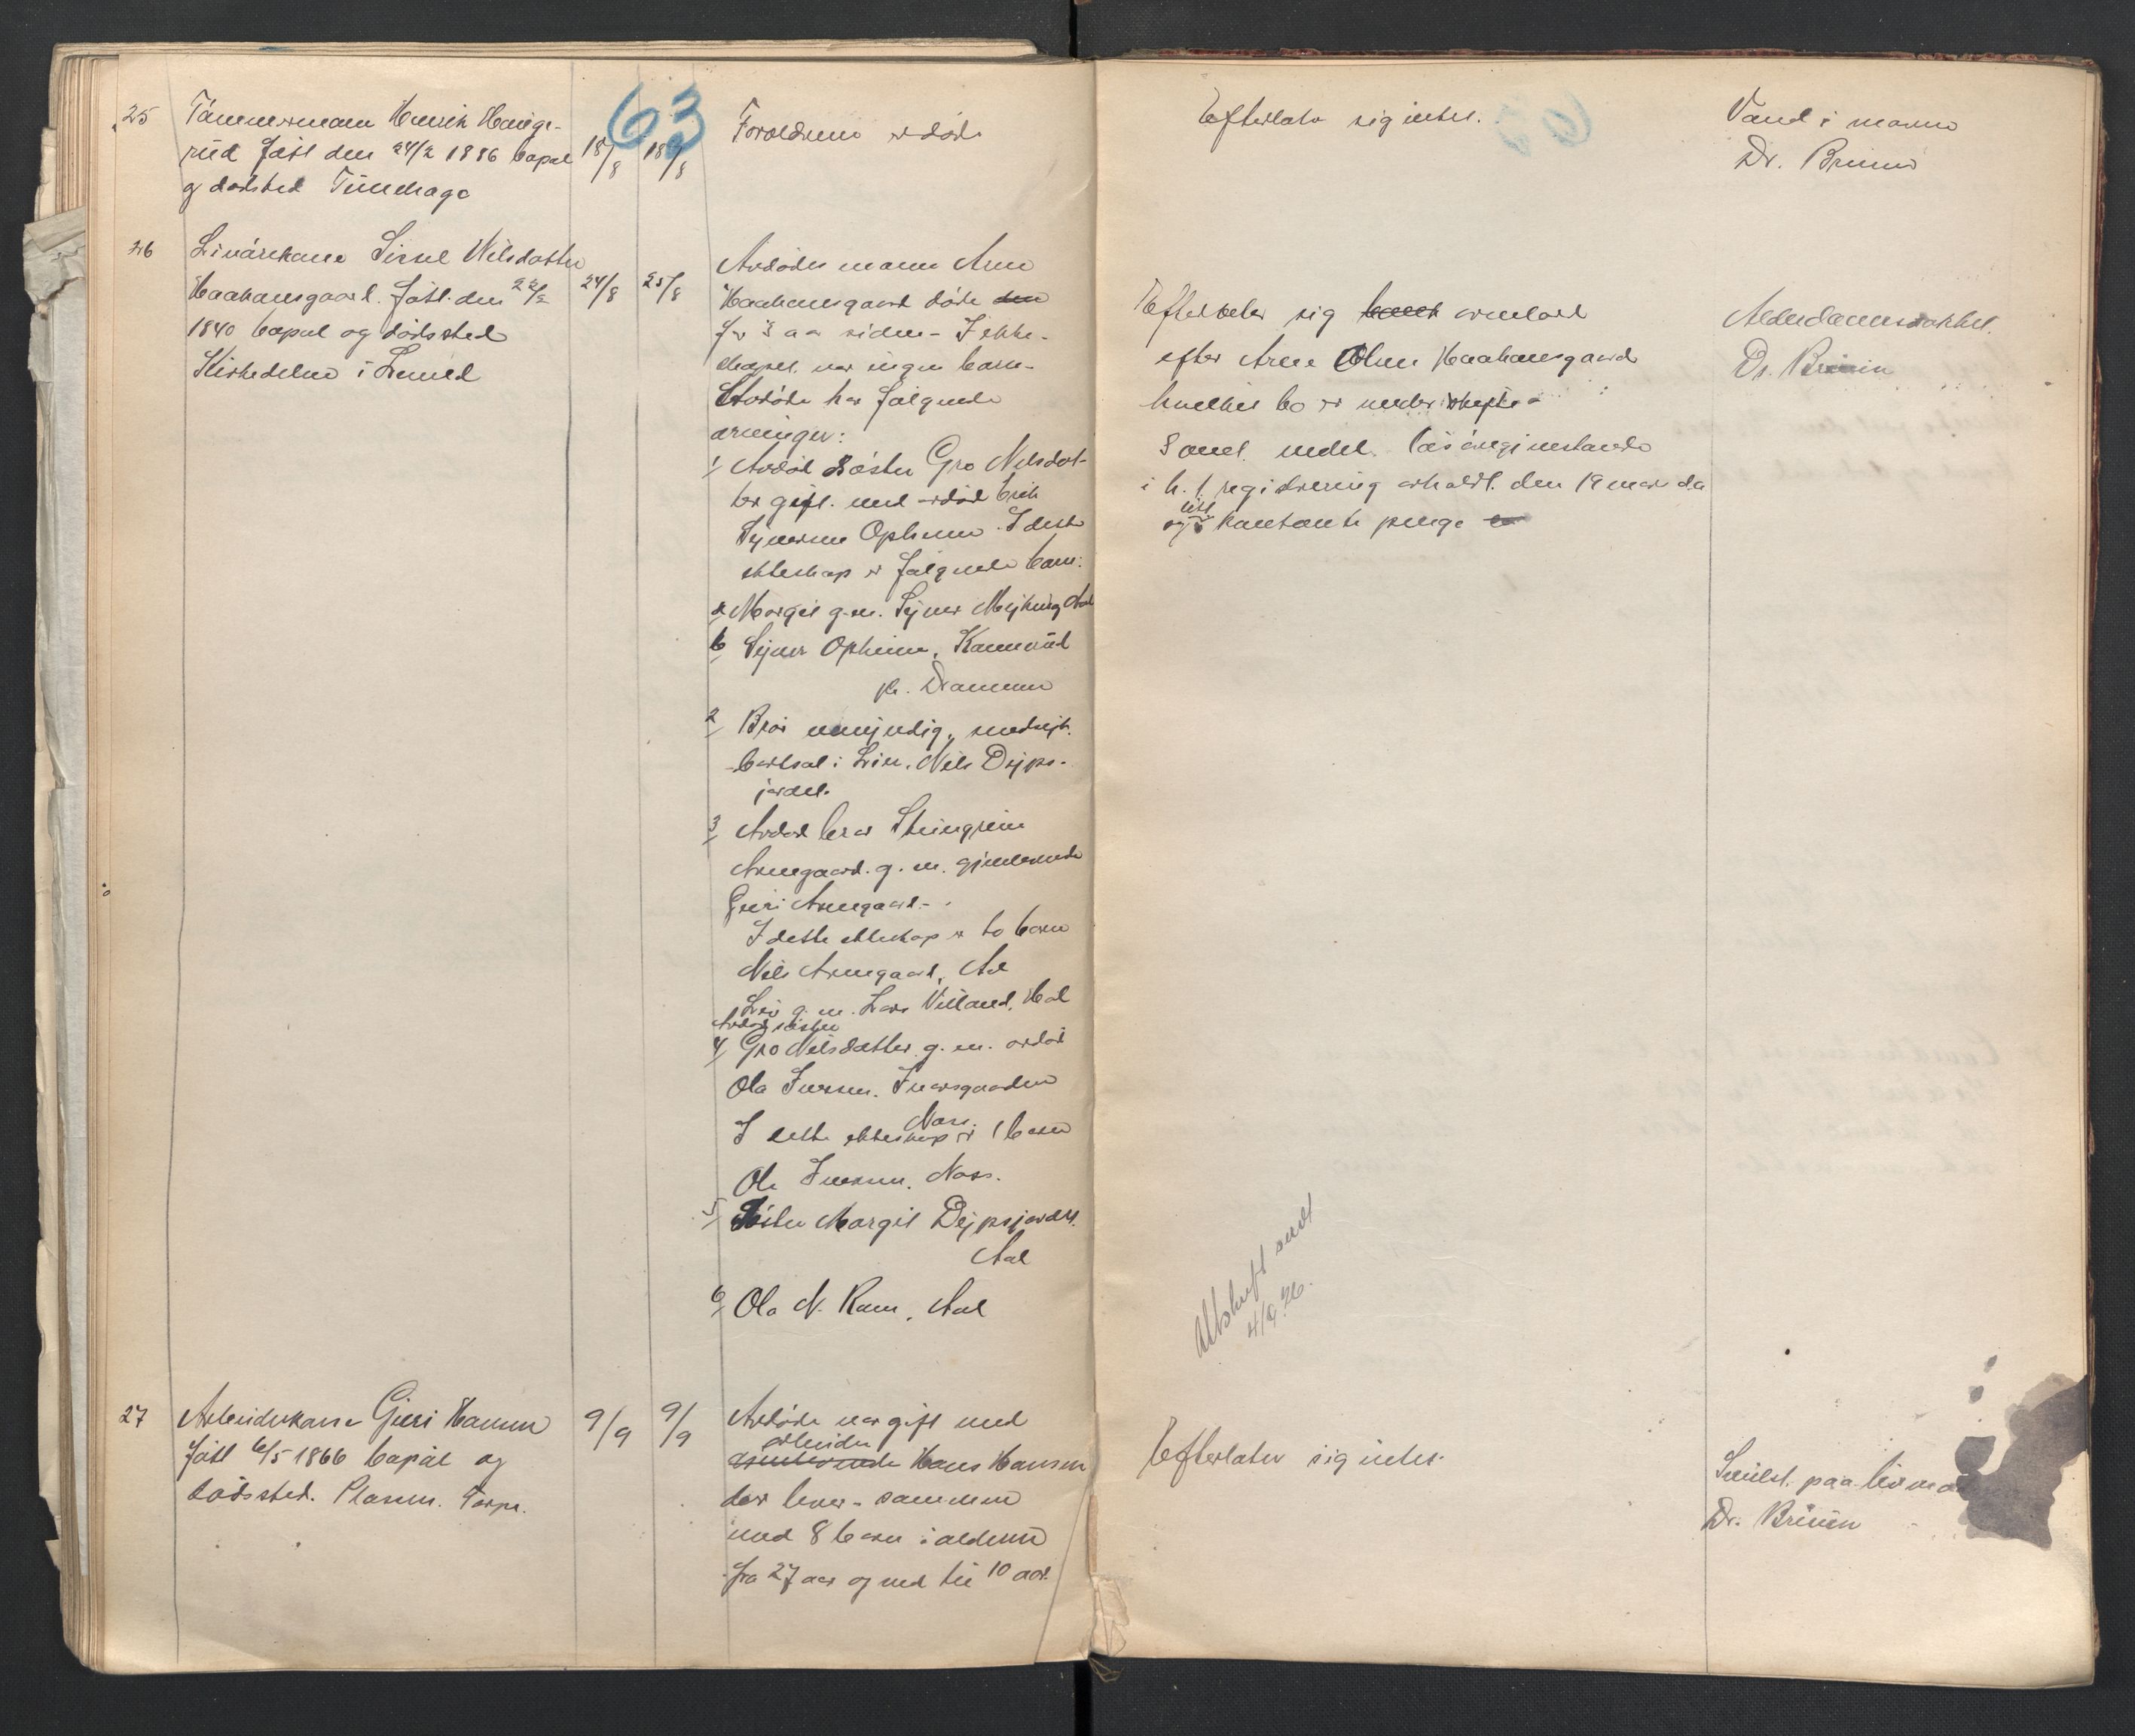 63
25
Tømmermann Henrik Hauge-
rud født den 24/2 1886 bopæl
og dødsted Tundhage
18/8
18/8
Forældrene er døde
Efterlater sig intet.
Vand i maven
Dr. Bruun
26
Livørekone Sissel Nilsdatter
Haakonsgaard. Født den 22/2
1840 bopæl og dødssted
Kirkedelen i Lerud
24/8
25/8
Avdødes mann Arne
Haakonsgaard døde den
for 3 aar siden - I ekte-
skapet var ingen barn -
Avdøde har følgende
arvinger:
1/ Avdød søster Gro Nilsdat-
ter gift. med avdød Erik
Syversen Opheim. I dette
ekteskap er følgende barn:
a Margit g.m. Syver Myking Aal
b Syver Opheim,
pr. Drammen
2/ Bror umyndig,
i Lien. Nils Dejps-
jardet.
3/ Avdød bror Steingrim
Arnegaard. g. m. gjenlevende
Guri Arnegaard -
I dette ekteskap er to barn
Nils Arnegaard, Aal
Liv g. m. Lars Villand, Hol
Avdød søster
4/ Gro Nilsdatter g. m. avdød
Ola Iversen. Iversgaarden
Næs.
I dette ekteskap er 1 barn
Ole Iversen. Næss.
5/ Søster Margit Dejpsjordet.
Aal
6/ Ola N. Ram, Aal
Efterlater sig arvelodd
efter Arne Olsen Haakonsgaard
hvilket bo er under skifte -
Samt endel løsøregjenstande
i h. t. registrering avholdt den 19 mars da
og litt kontante penge
Alderdomssvakhet.
Dr. Bruun
Utskrift sendt
4/9 26.
27
Arbeiderkone Guri Hansen
født 6/5 1866 bopæl og
dødssted. Plassen. Torpe.
9/9
9/9
Avdøde var gift med
arbeider
gjenlevende Hans Hansen
der lever - sammen
med 8 barn i alderen
fra 27 aar og ned til 10 aar.
Efterlater sig intet.
Svulst. paa livmo
Dr. Bruun